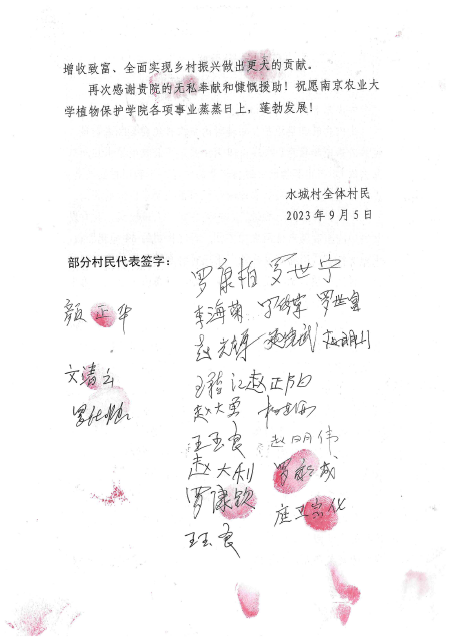 增收致富、全面实现乡村振兴做出更大的贡献。
再次感谢贵院的无私奉献和慷慨援助！祝愿南京农业大
学植物保护学院各项事业蒸蒸日上，蓬勃发展！
水城村全体村民
2023年9月5日
部分村民代表签字：
罗康柏 罗世宁
颜正华 李海菊
文清云
赵大勇
王玉良 赵明伟
赵大利
罗康钦
王玉良